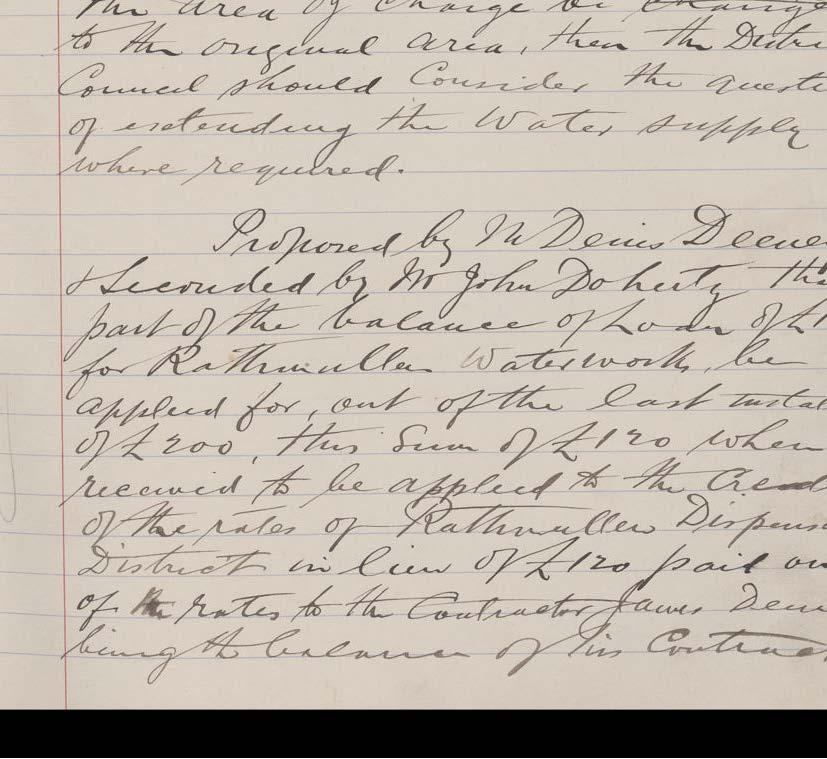 the area of charge be change
to the original area, then the Distri
Council should Consider the questi
of extending the Water supply
where required.
Proposed by Mr Denis Deeve
& Seconded by Mr John Doherty tha
part of the balance of Loan of £1
for Rathmullen Waterworks, be
applied for, out of the last instal
of £200, this Sum of £120 when
received to be applied to the Cred
of the rates of Rathmullen Dispens
District in lieu of £120 paid ou
of the rates to the Contractor James Deve
being the balance of his Contrac